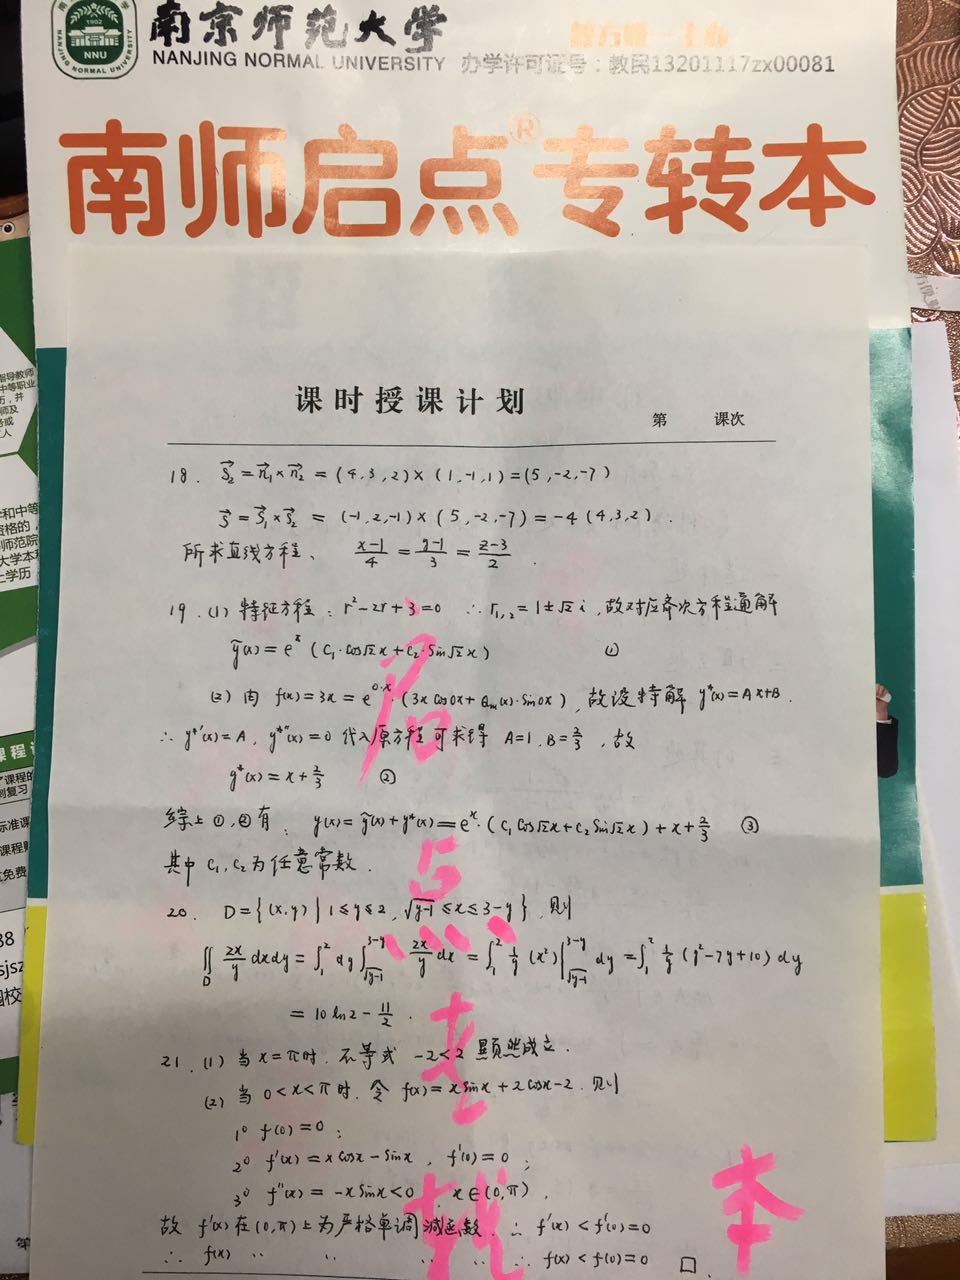 南京师范大学
NANJING NORMAL UNIVERSITY 办学许可证号：教民13201117zx00081
南师启点®专转本
课时授课计划
第 课次
18. S⃗₂ = n⃗₁×n⃗₂ = (4,3,2)×(1,-1,1)=(5,-2,-7)
S⃗ = S⃗₁×S⃗₂ = (-1,2,-1)×(5,-2,-7)=-4(4,3,2).
所求直线方程、 (x-1)/4 = (y-1)/3 = (z-3)/2 .
19. (1) 特征方程: r²-2r+3=0 ∴ r₁,₂=1±√2 i, 故对应齐次方程通解
ỹ(x)=eˣ(C₁·cos√2x+C₂·Sin√2x) ①
(2) 由 f(x)=3x=e^{0·x}·(3x cos0x+Qₘ(x)·Sin0x), 故设特解 y*(x)=Ax+B.
∴ y*'(x)=A, y*''(x)=0 代入原方程可求得 A=1, B=2/3, 故
y*(x)=x+2/3 ②
综上①,②有: y(x)=ỹ(x)+y*(x)=eˣ·(C₁Cos√2x+C₂Sin√2x)+x+2/3 ③
其中C₁,C₂为任意常数.
20. D={(x,y)|1≤y≤2, √(y-1)≤x≤3-y}, 则
∬_D 2x/y dxdy=∫₁² dy∫_{√(y-1)}^{3-y} 2x/y dx=∫₁² 1/y (x²)|_{√(y-1)}^{3-y} dy=∫₁² 1/y (y²-7y+10)dy
= 10 ln2 - 11/2 .
21. (1) 当x=π时, 不等式 -2<2 显然成立.
(2) 当0<x<π时, 令 f(x)=xSinx+2Cosx-2, 则
1° f(0)=0;
2° f'(x)=xCosx-Sinx, f'(0)=0;
3° f''(x)=-xSinx<0, x∈(0,π),
故 f'(x)在(0,π)上为严格单调减函数, ∴ f'(x)<f'(0)=0
∴ f(x) 〃 〃 〃 〃 ∴ f(x)<f(0)=0 □.
启
点
专
转
本